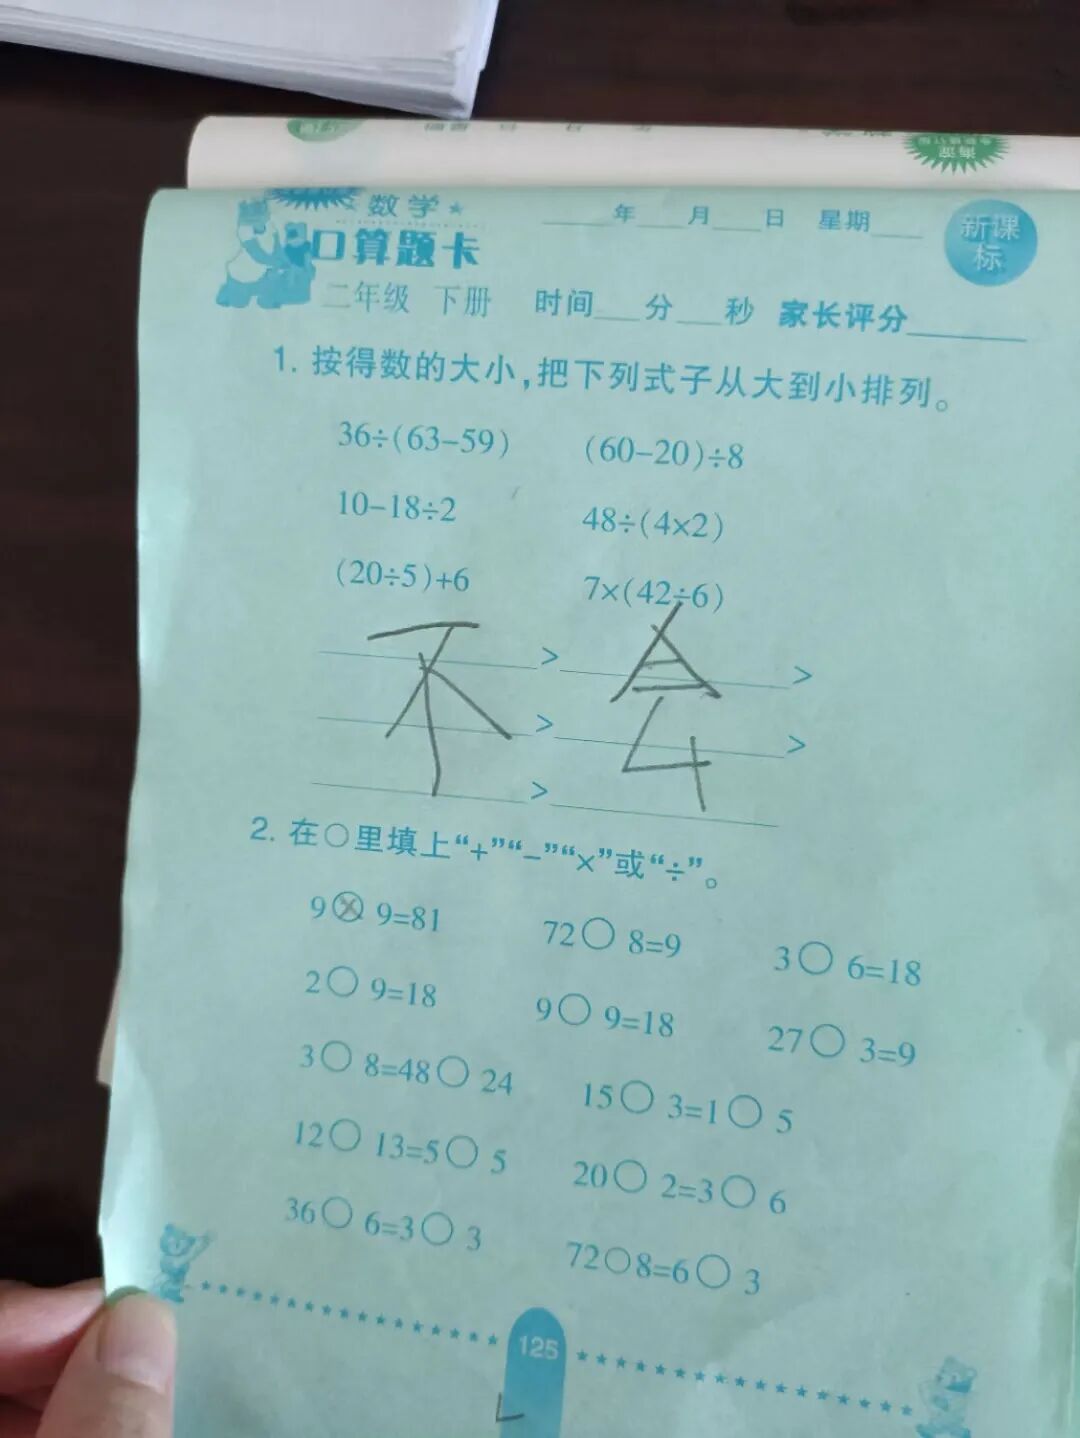 数学
年 月 日 星期
新课标
口算题卡
二年级 下册 时间 分 秒 家长评分
1. 按得数的大小,把下列式子从大到小排列。
36÷(63-59) (60-20)÷8
10-18÷2 48÷(4×2)
(20÷5)+6 7×(42÷6)
> >
> >
>
不会
2. 在○里填上“+”“-”“×”或“÷”。
9⊗9=81 72○8=9 3○6=18
2○9=18 9○9=18 27○3=9
3○8=48○24 15○3=1○5
12○13=5○5 20○2=3○6
36○6=3○3 72○8=6○3
125